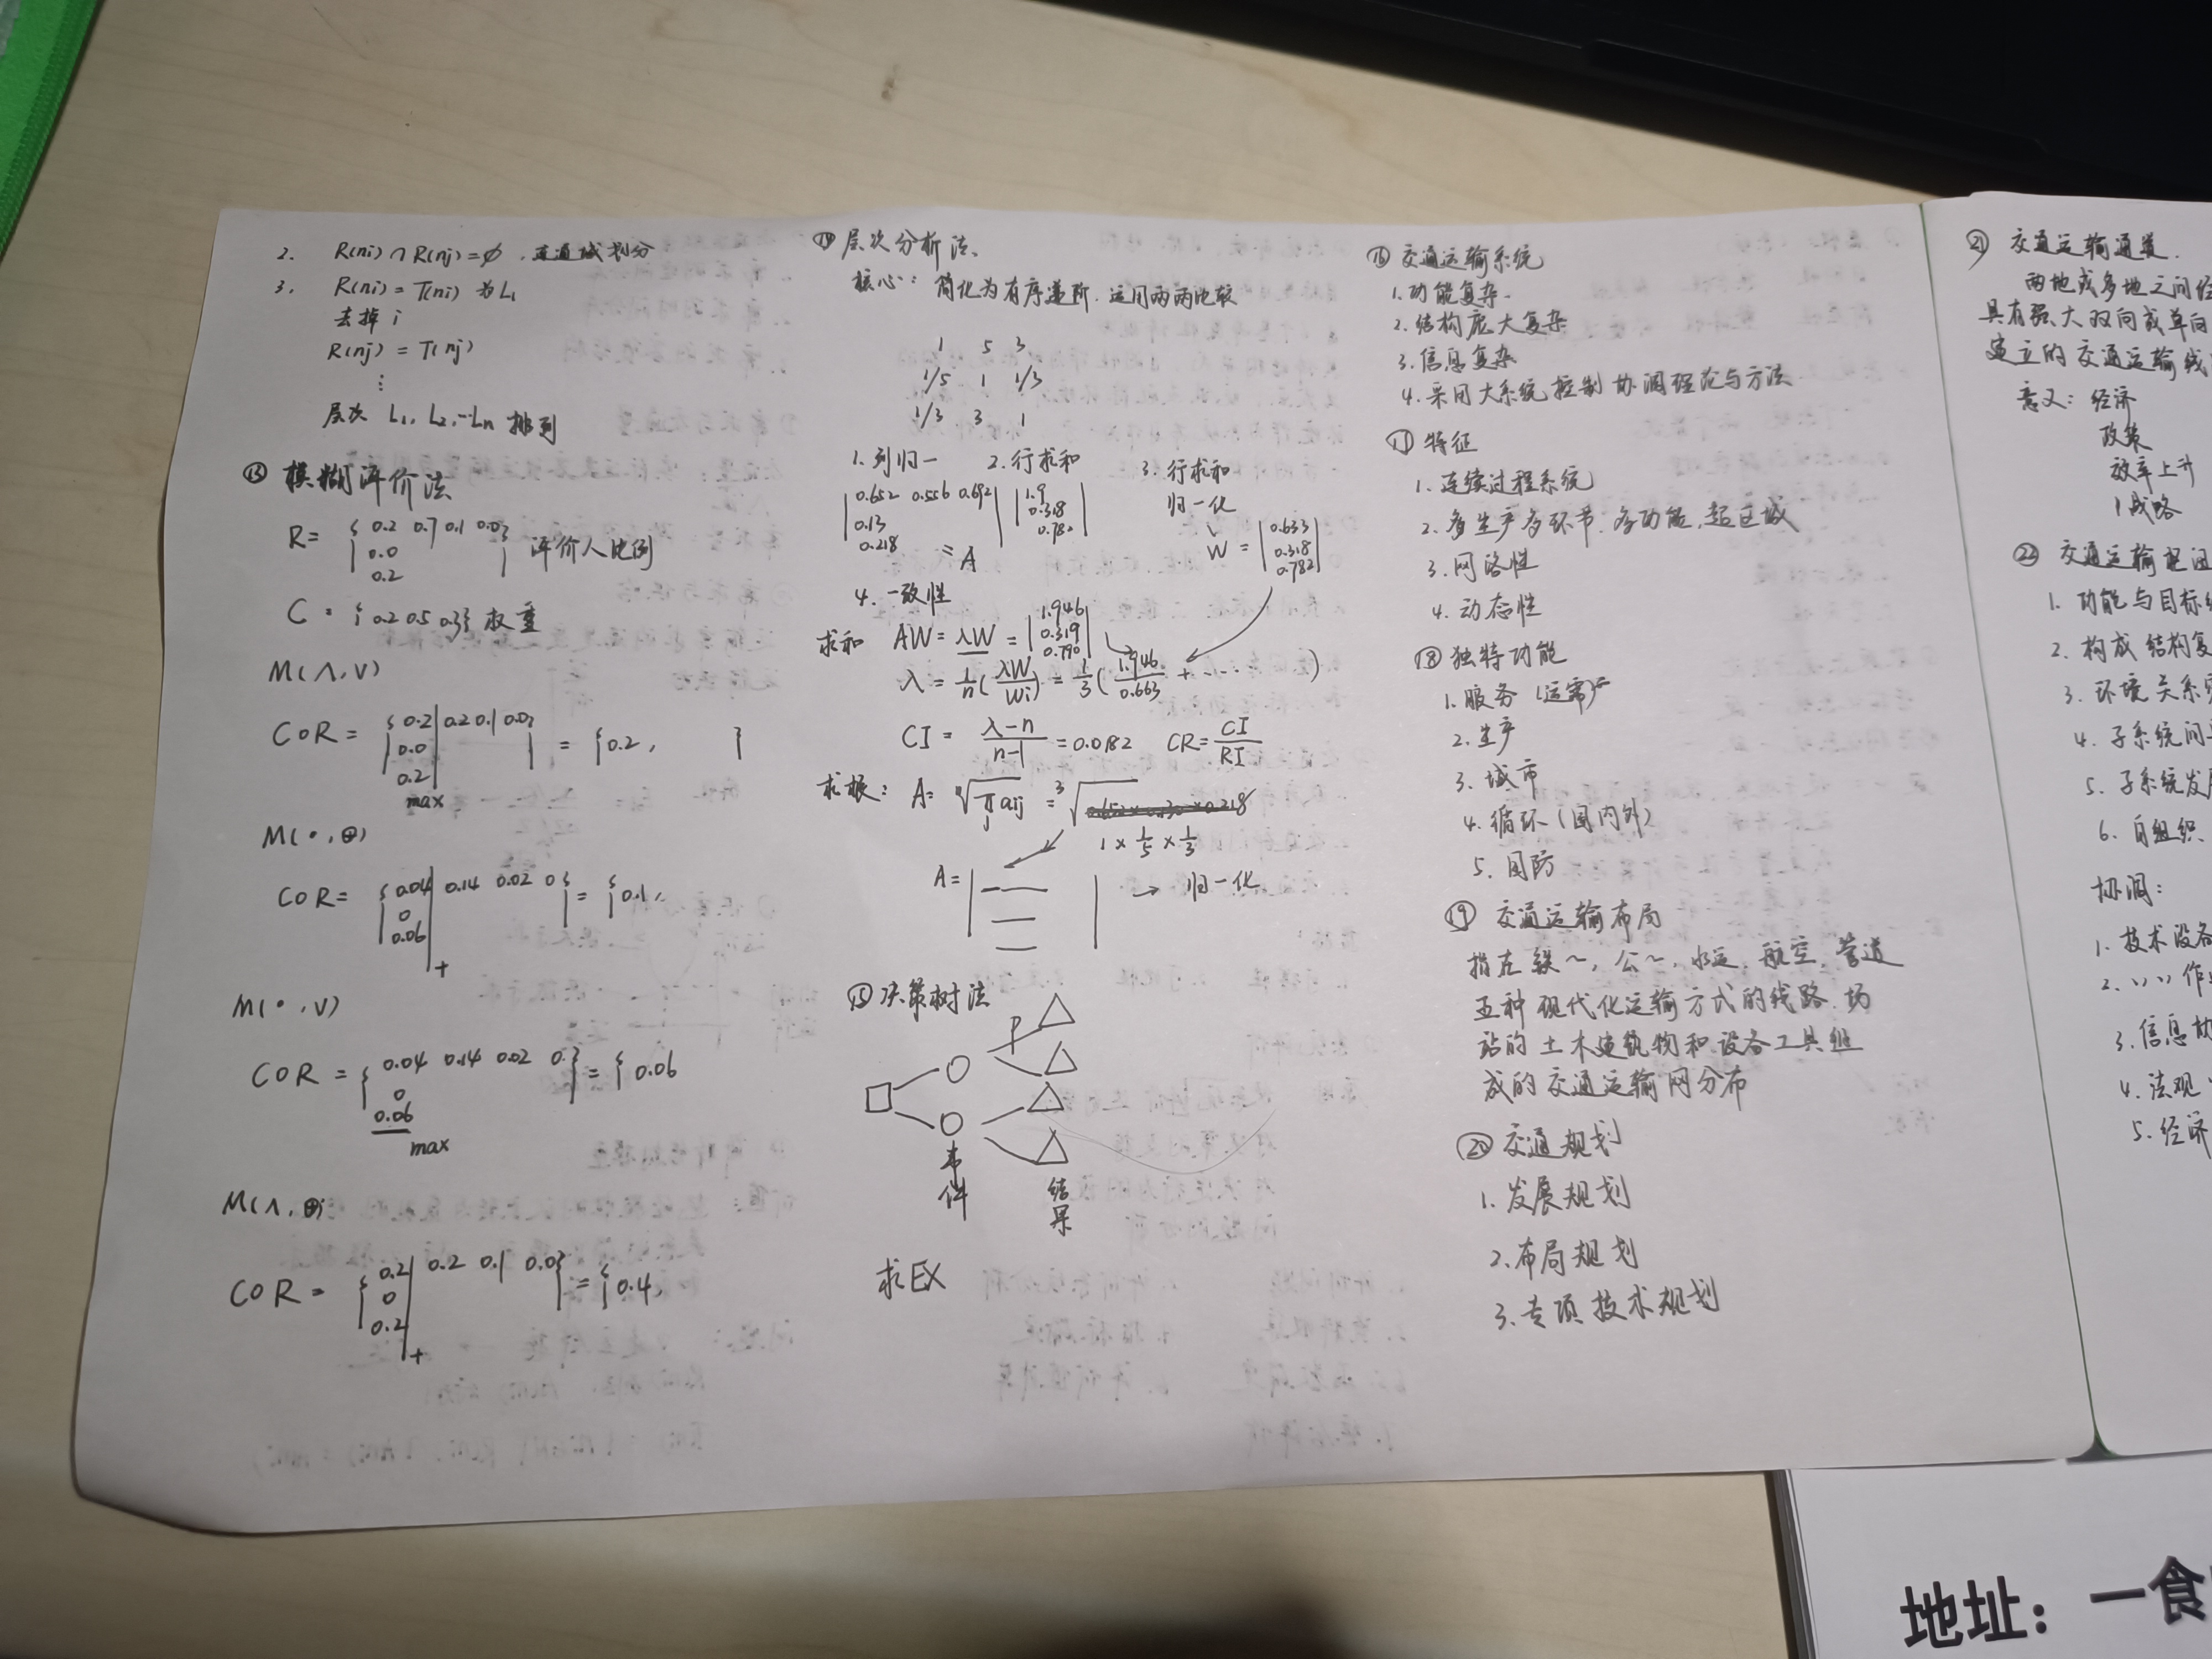 2. R(ni) ∩ R(nj) = ∅ . 连通域划分
3. R(ni) = T(ni) 为 L₁
去掉 i
R(nj) = T(nj)
⋮
层次 L₁, L₂, ... Ln 排列
⑬ 模糊评价法
R = { 0.2 0.7 0.1 0.0 }
0.0
0.2
评价人比例
C = { 0.2 0.5 0.3 } 权重
M(∧, ∨)
C o R = { 0.2 0.2 0.1 0.0 } = { 0.2, }
0.0
0.2
max
M(•, ⊕)
C o R = { 0.04 0.14 0.02 0 } = { 0.1,
0
0.06
+
M(•, ∨)
C o R = { 0.04 0.14 0.02 0. } = { 0.06
0
0.06
max
M(∧, ⊕)
C o R = { 0.2 0.2 0.1 0.0 } = { 0.4,
0
0.2
+
⑭ 层次分析法
核心: 简化为有序递阶. 运用两两比较
1 5 3
1/5 1 1/3
1/3 3 1
1. 列归一 2. 行求和 3. 行求和
归一化
0.652 0.556 0.692
0.13
0.218
= A
1.9
0.318
0.782
W = 0.633
0.318
0.782
4. 一致性
求和 AW = λW = 1.946
0.319
0.790
λ = 1/n (λW/Wi) = 1/3 (1.946/0.663 + ...... )
CI = λ-n/n-1 = 0.0182 CR = CI/RI
求根: A = ⁿ√π aij = ³√
j
1 × 1/5 × 1/3
A = → 归一化
⑮ 决策树法
P
事件
结果
求EX
⑯ 交通运输系统
1. 功能复杂.
2. 结构庞大复杂
3. 信息复杂
4. 采用大系统控制协调理论与方法
⑰ 特征
1. 连续过程系统
2. 多生产多环节. 多功能, 超区域
3. 网络性
4. 动态性
⑱ 独特功能
1. 服务
2. 生产
3. 城市
4. 循环 (国内外)
5. 国防
⑲ 交通运输布局
指在铁~, 公~, 水运, 航空, 管道
五种现代化运输方式的线路. 场
站的土木建筑物和设备工具组
成的交通运输网分布
⑳ 交通规划
1. 发展规划
2. 布局规划
3. 专项技术规划
㉑ 交通运输通道.
两地或多地之间
具有强大双向或单向
建立的交通运输线
意义: 经济
政策
效率上升
战略
㉒ 交通运输
1. 功能与目标
2. 构成结构复
3. 环境关系
4. 子系统间
5. 子系统发
6. 自组织
协调:
1. 技术设备
2. 〃 作
3. 信息
4. 法规
5. 经济
地址: 一食